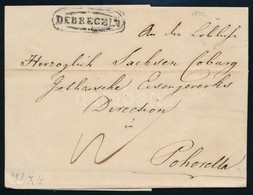 DEBRECZIN
An die Löbliche
Herzoglich Sachsen Coburg
Gothaische Eisengewerks
Direction
in
Pohorella